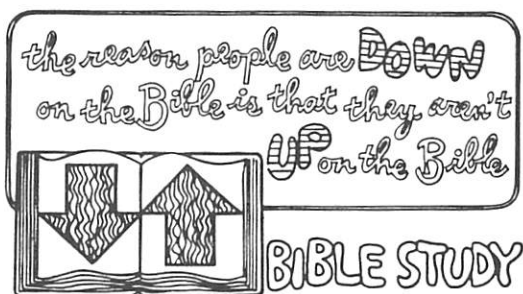 the reason people are DOWN
on the Bible is that they aren't
UP on the Bible
BIBLE STUDY